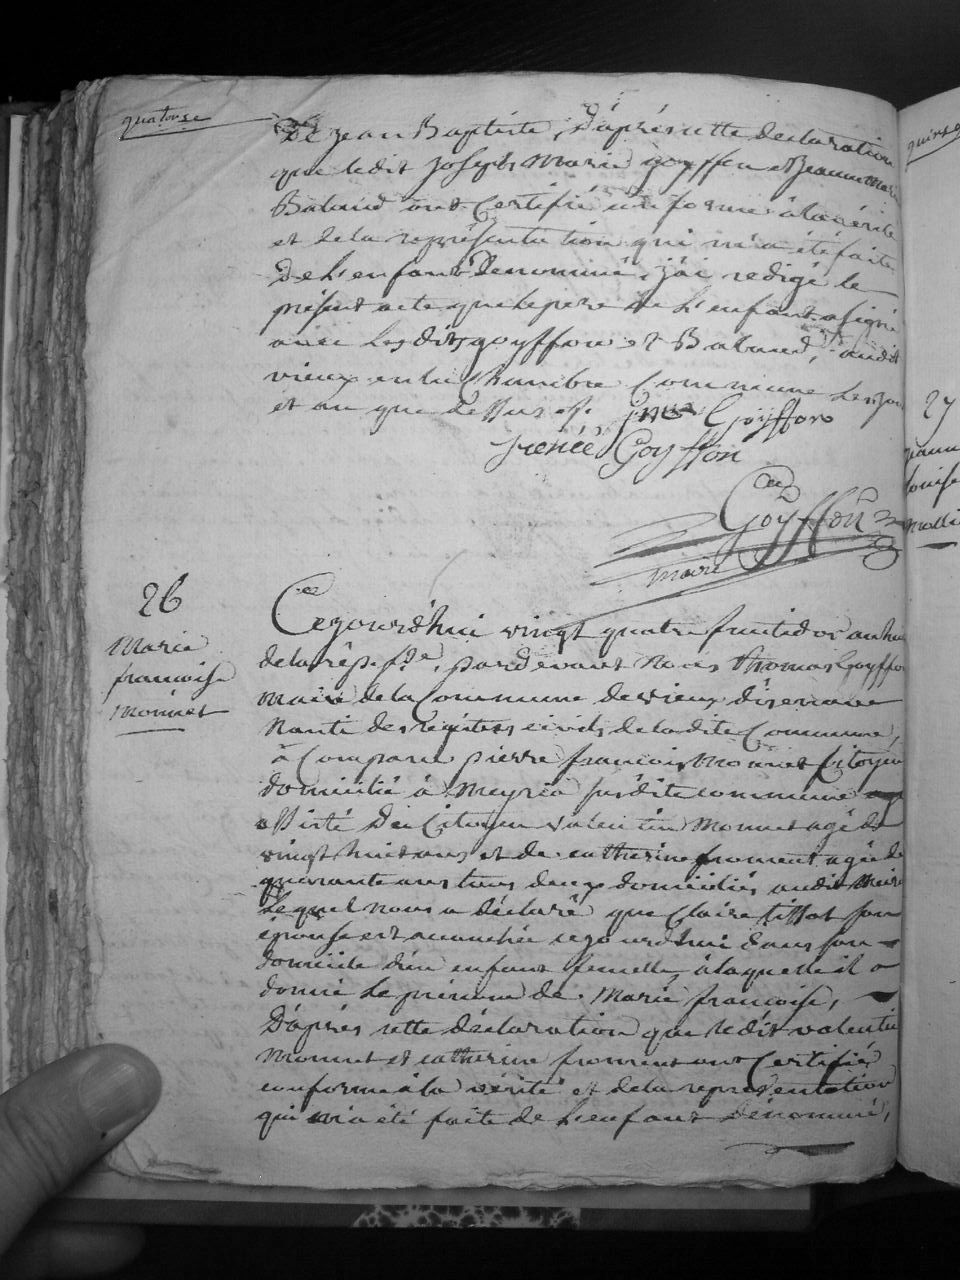 quatorse
De jean Baptiste, D'après cette declaration
que ledit joseph Marie goyffon et jeanne Marie
Baland ont Certifié conforme à la vérité
et de la représentation qui m'a été faite
De l'enfant Denommé, j'ai redigé le
présent acte que le père de l'enfant a signé
avec lesdits goyffon et Baland, audit
vieux en la Chambre Commune les jour
et an que dessus.
Goyffon
jrenée Goyffon
Goyffon
maire
26
Marie
francoise
Monnet
Cejourd'hui vingt quatre fructidor an huit
de la rép. f.se, pardevant nous thomas Goyffon
maire de la Commune de vieux diserave
Nanti des régitres civils de la dite Commune,
à Comparu pierre françois Monnet Citoyen
domicilié à Meyria susdite commune
assisté Du Citoyen valentin Monnet agé de
vingt huit ans et de catherine froment agée de
quarante ans tous deux domiciliés audit
Lequel nous a déclaré que Claire tissot son
épouse est accouchée cejourd'hui dans son
domicile d'un enfant femelle, à laquelle il a
donné le prénom de Marie francoise,
D'après cette déclaration que ledit valentin
Monnet et catherine froment ont Certifié
conforme à la vérité et de la représentation
qui m'a été faite de l'enfant Dénommé,
quinse
27
jeanne
louise